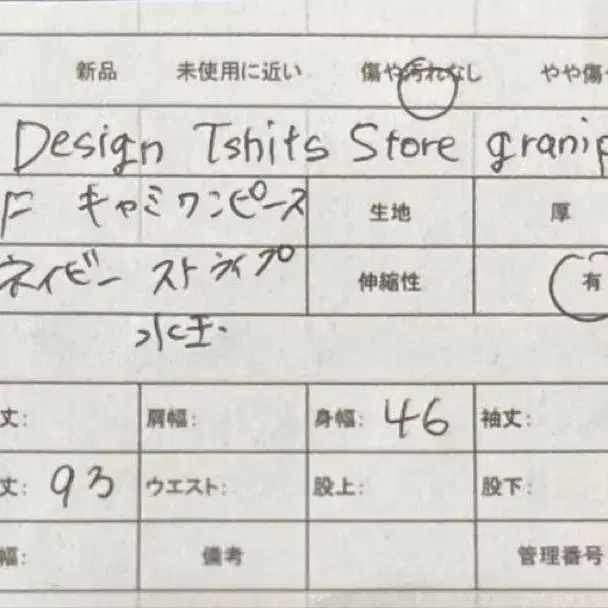 新品 未使用に近い 傷や汚れなし やや傷
Design Tshits Store granip
F キャミワンピース 生地 厚
ネイビー ストライプ 伸縮性 有
水玉
丈: 肩幅: 身幅: 46 袖丈:
丈: 93 ウエスト: 股上: 股下:
幅: 備考 管理番号